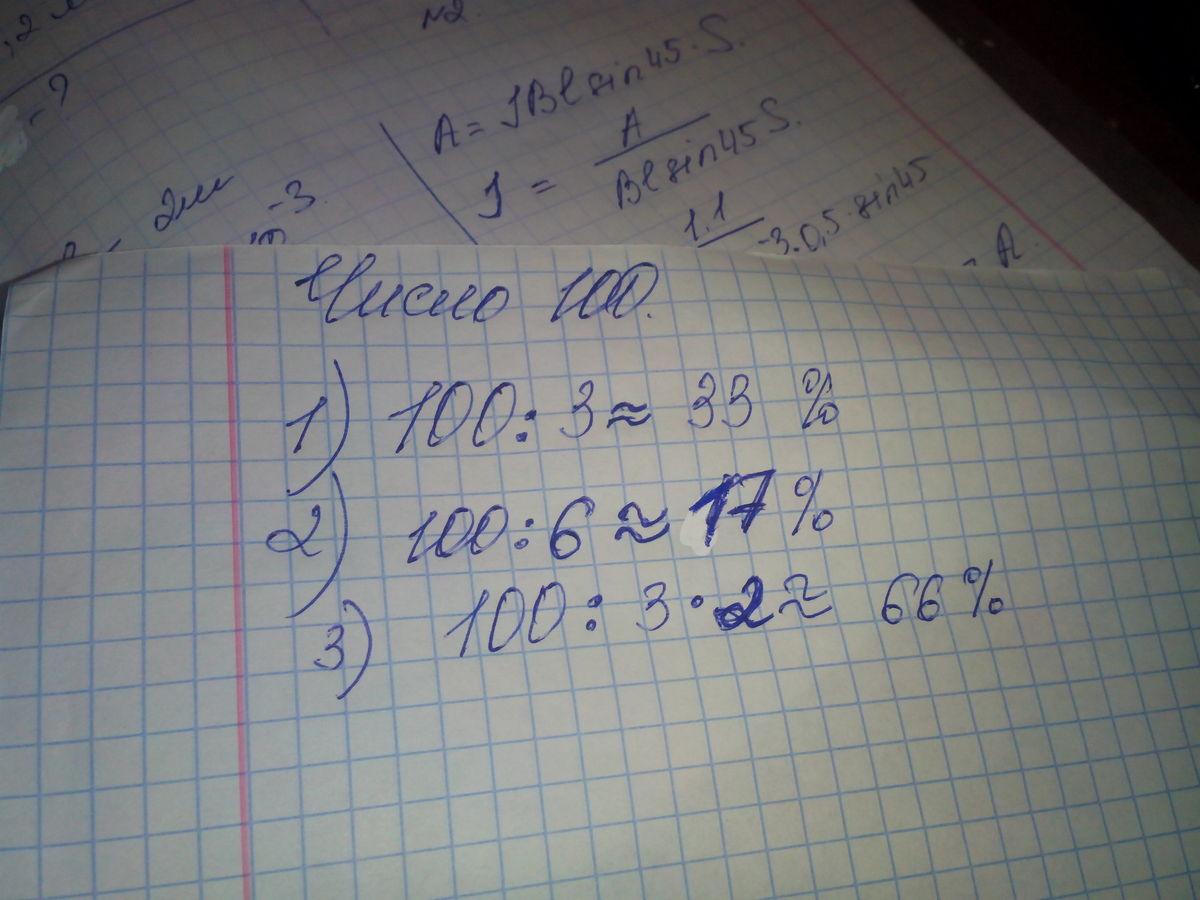 №2.
, 2
- ?
A = IBl sin 45 · S.
I = A / Bl sin 45 S.
2м
-3.
1.1
-3. 0,5 · sin 45
Число 100.
1) 100 : 3 ≈ 33 %
2) 100 : 6 ≈ 17 %
3) 100 : 3 · 2 ≈ 66 %